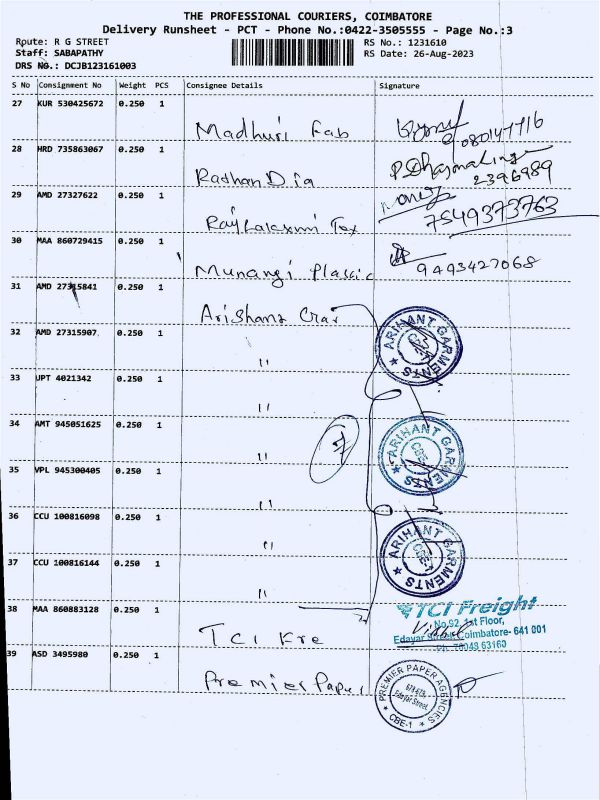 THE PROFESSIONAL COURIERS, COIMBATORE
Delivery Runsheet - PCT - Phone No.:0422-3505555 - Page No.:3
Route: R G STREET RS No.: 1231610
Staff: SABAPATHY RS Date: 26-Aug-2023
DRS NO.: DCJB123161003
S No Consignment No Weight PCS Consignee Details Signature
27 KUR 530425672 0.250 1
Madhuri Fab
28 HRD 735863067 0.250 1
P. Dharmalinga
2396989
29 AMD 27327622 0.250 1
7549373763
30 MAA 860729415 0.250 1
Munangi Plassic 9493427068
31 AMD 27315841 0.250 1
32 AMD 27315907 0.250 1
ARIHANT GARMENTS
"
33 UPT 4021342 0.250 1
"
34 AMT 945051625 0.250 1
7
ARIHANT GARMENTS
"
35 VPL 945300405 0.250 1
"
36 CCU 100816098 0.250 1
ARIHANT GARMENTS
CBE-1
"
37 CCU 100816144 0.250 1
"
38 MAA 860883128 0.250 1
TCI Freight
No,92, 1st Floor,
TCI Fre
Edayar Street, Coimbatore- 641 001
39 ASD 3495980 0.250 1
Premier Paper
PREMIER PAPER AGENCIES
Edayar Street
CBE-1